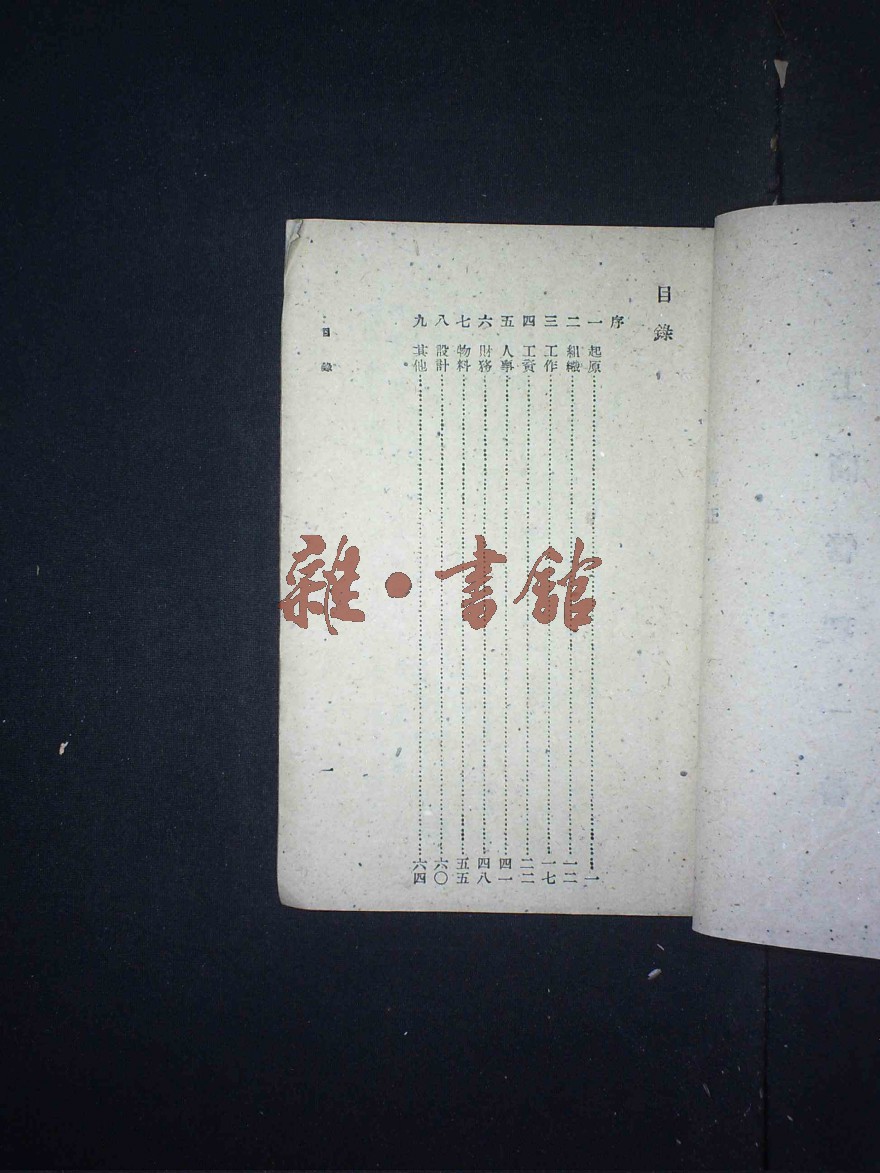 目錄
序
一 起原……一
二 組織……一二
三 工作……一七
四 工資……二二
五 人事……四一
六 財務……四八
七 物料……五五
八 設計……六〇
九 其他……六四
目錄
一
雜·書館